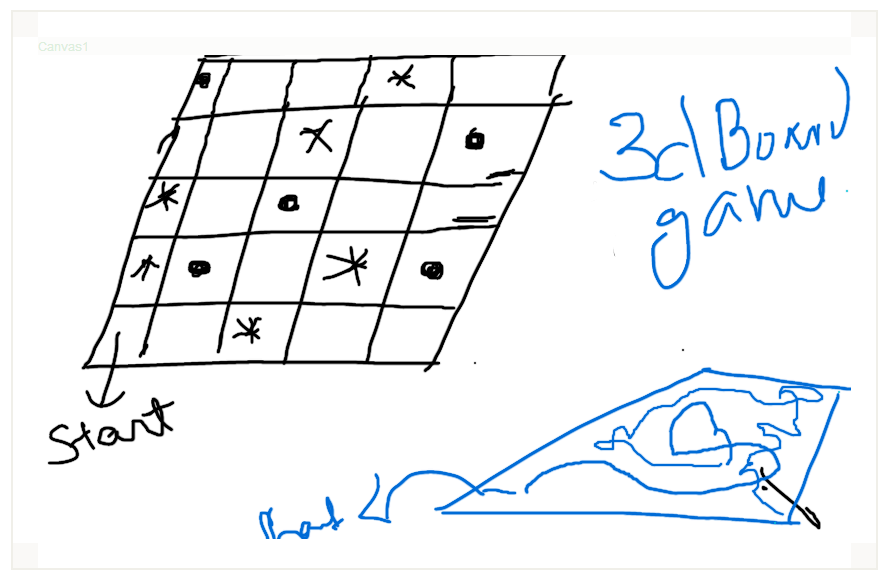 Canvas1
3d Board
game
Start